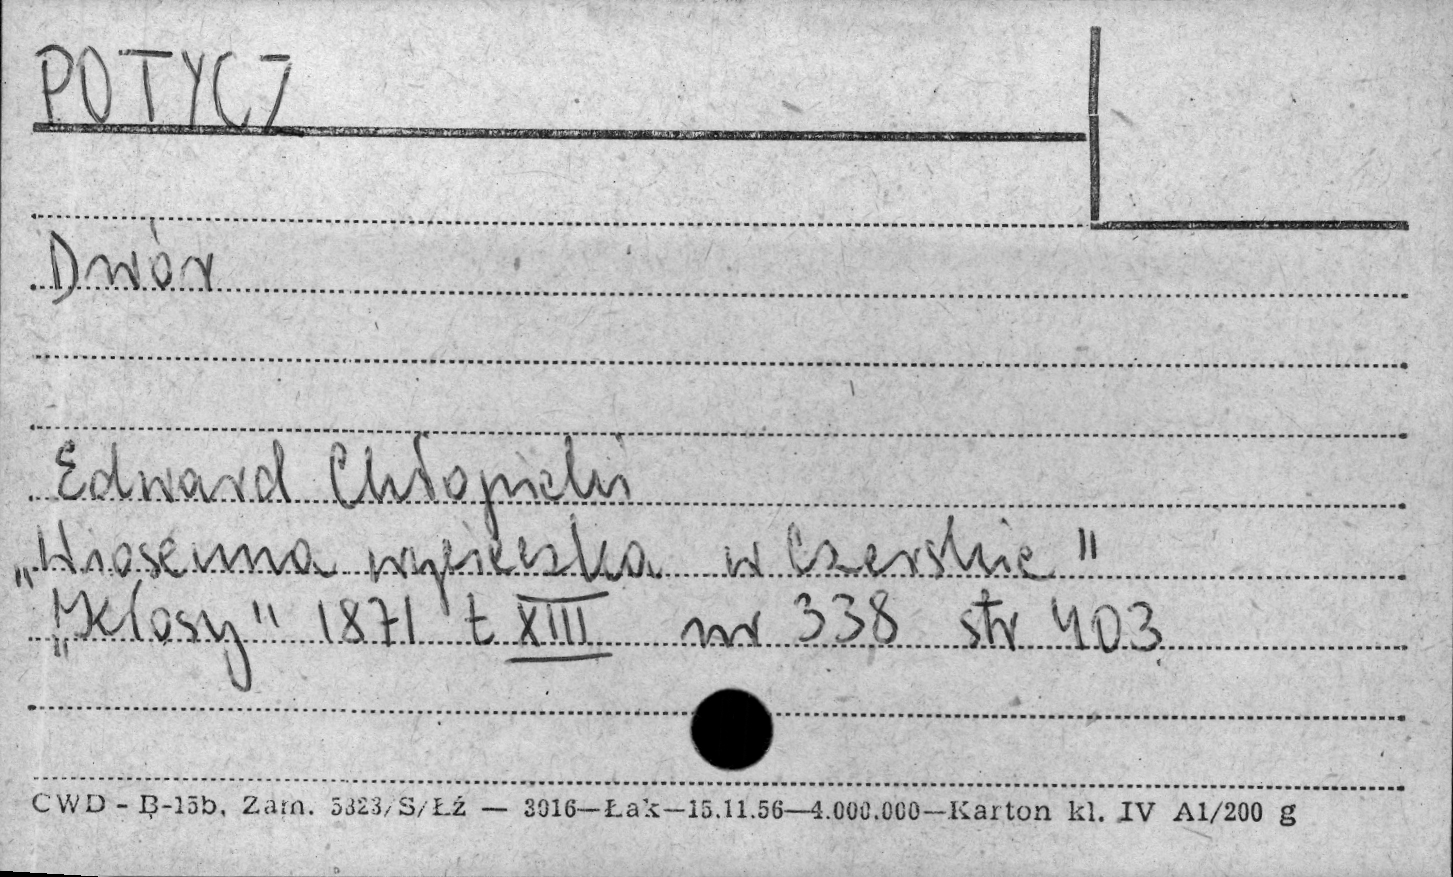 POTYCZ
Dwór
Edward Chłopicki
„Wiosenna wycieczka w Czerskie"
„Kłosy" 1871 t XIII nr 338 str 403
CWD - B-15b. Zam. 5323/S/Łź — 3016—Łak—15.11.56—4.000.000—Karton kl. IV A1/200 g